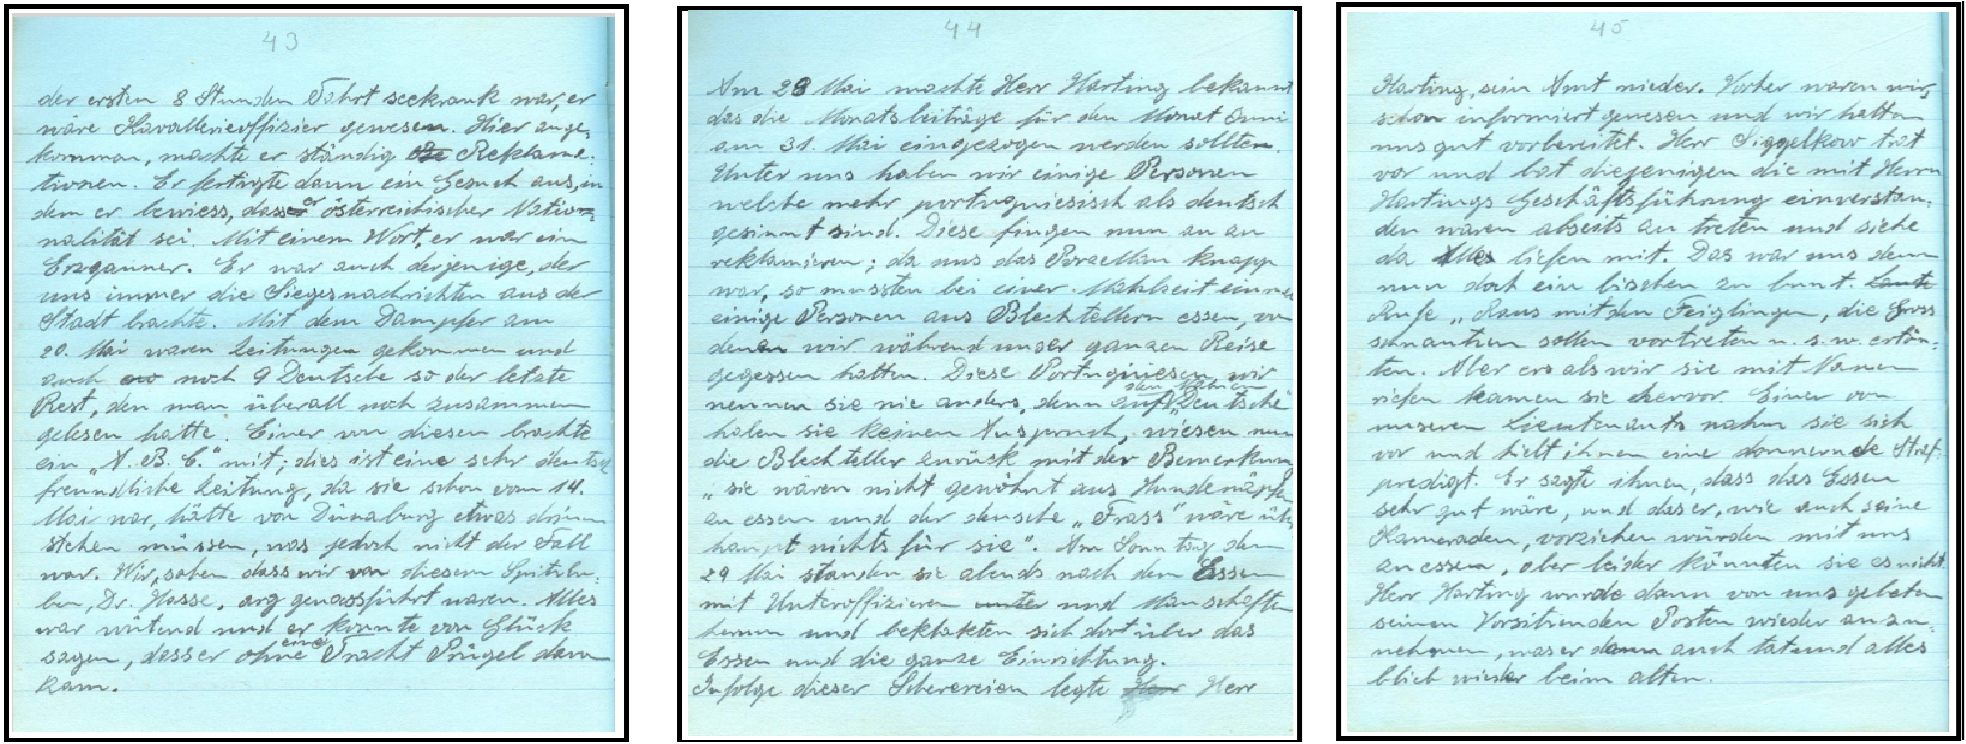 43
der ersten 8 Stunden Fahrt seekrank war, er
wäre Kavallerieoffizier gewesen. Hier ange-
kommen, machte er ständig Reklama-
tionen. Er fertigte dann ein Gesuch aus, in
dem er beweiss, dass er österreichischer Natio-
nalität sei. Mit einem Wort, er war ein
Erzgauner. Er war auch derjenige, der
uns immer die Siegesnachrichten aus der
Stadt brachte. Mit dem Dampfer am
20. Mai waren Zeitungen gekommen und
auch noch 9 Deutsche so der letzte
Rest, den man überall noch zusammen
gelesen hatte. Einer von diesen brachte
ein „A. B. C." mit; dies ist eine sehr deutsch
freundliche Zeitung, da sie schon vom 14.
Mai war, hätte von Dünaburg etwas drinnen
stehen müssen, was jedoch nicht der Fall
war. Wir sahen dass wir von diesem Spitzbu-
ben, Dr. Hasse, arg genassführt waren. Alles
war wütend und er konnte von Glück
sagen, dass er ohne eine Tracht Prügel davon
kam.
44
Am 28 Mai machte Herr Harting bekannt
das die Monatsbeiträge für den Monat Juni
am 31. Mai eingezogen werden sollten.
Unter uns haben wir einige Personen
welche mehr portugiesisch als deutsch
gesinnt sind. Diese fingen nun an zu
reklamieren; da uns das Porzellan knapp
war, so mussten bei einer Mahlzeit
einige Personen aus Blechtellern essen, von
denen wir während unser ganzen Reise
gegessen hatten. Diese Portugiesen, wir
nennen sie nie anders, denn auf den Nahmen „Deutsche"
haben sie keinen Anspruch, wiesen nun
die Blechteller zurück mit der Bemerkung
„sie wären nicht gewöhnt aus Hundenäpfen
zu essen und der deusche „Frass" wäre über
haupt nichts für sie". Am Sonntag dem
29 Mai standen sie abends nach dem Essen
mit Unteroffizieren und Manschaften
herum und beklakten sich dort über das
Essen und die ganze Einrichtung.
Infolge dieser Scherereien legte Herr
45
Harting, sein Amt nieder. Vorher waren wir,
schon informiert gewesen und wir hatten
uns gut vorbereitet. Herr Siggelkow trat
vor und bat diejenigen die mit Herrn
Hartings Geschäftsführung einverstan-
den waren abseits zu treten und siehe
da Alles liefen mit. Das war uns denn
nun doch ein bischen zu bunt. Laute
Rufe „Raus mit den Feiglingen, die Gross
schnautzen sollen vortreten u. s. w. ertön-
ten. Aber ers als wir sie mit Namen
riefen kamen sie hervor. Einer von
unseren Lieutenants nahm sie sich
vor und hielt ihnen eine donnernde Straf-
predigt. Er sagte ihnen, dass das Essen
sehr gut wäre, und das er, wie auch seine
Kameraden, vorziehen würden mit uns
zu essen, aber leider könnten sie es nicht.
Herr Harting wurde dann von uns gebeten
seinen Vorsitzenden Posten wieder anzu-
nehmen, was er dann auch tat und alles
blieb wieder beim alten.